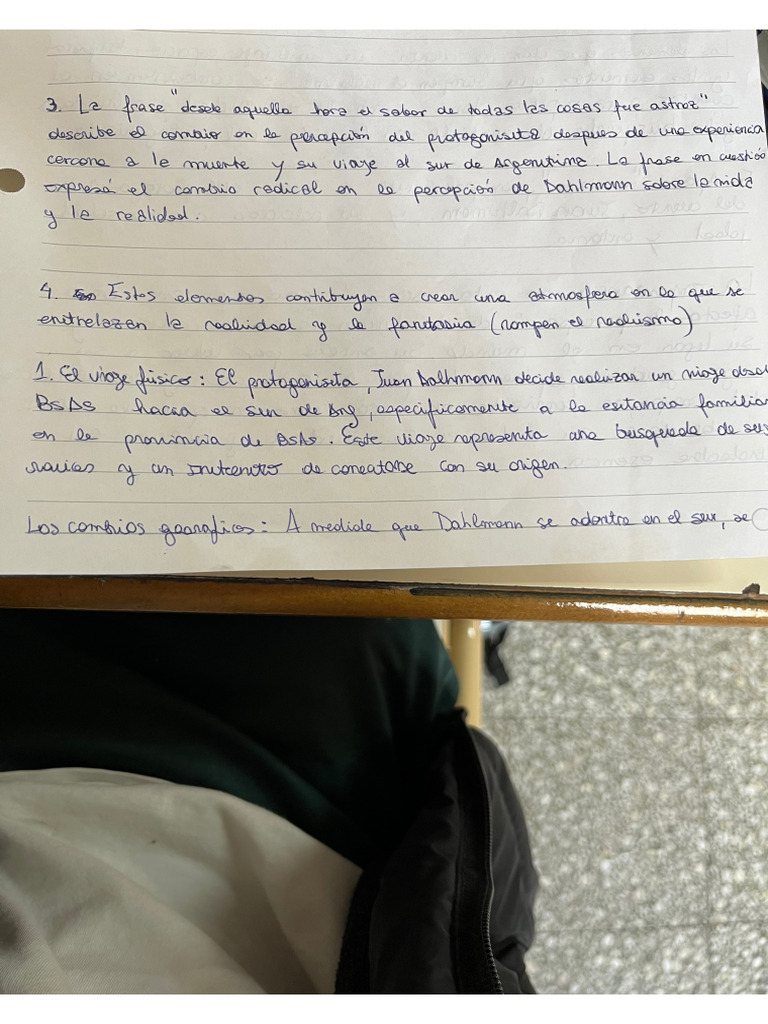 3. La frase "desde aquella hora el sabor de todas las cosas fue astroz"
describe el cambio en la percepción del protagonista despues de una experiencia
cercana a la muerte y su viaje al sur de Argentina. La frase en cuestión
expresá el cambio radical en la percepción de Dahlmann sobre la vida
y la realidad.
4. Estos elementos contribuyen a crear una atmosfera en la que se
entrelazan la realidad y la fantasia (rompen el realismo)
1. El viaje físico: El protagonista, Juan Dalhmann decide realizar un viaje desd
BsAs hacia el sur de Arg, especificamente a la estancia familiar
en la provincia de BsAs. Este viaje representa una busqueda de sus
raices y un intento de conectarse con su origen.
Los cambios geograficos: A medida que Dahlmann se adentra en el sur, se